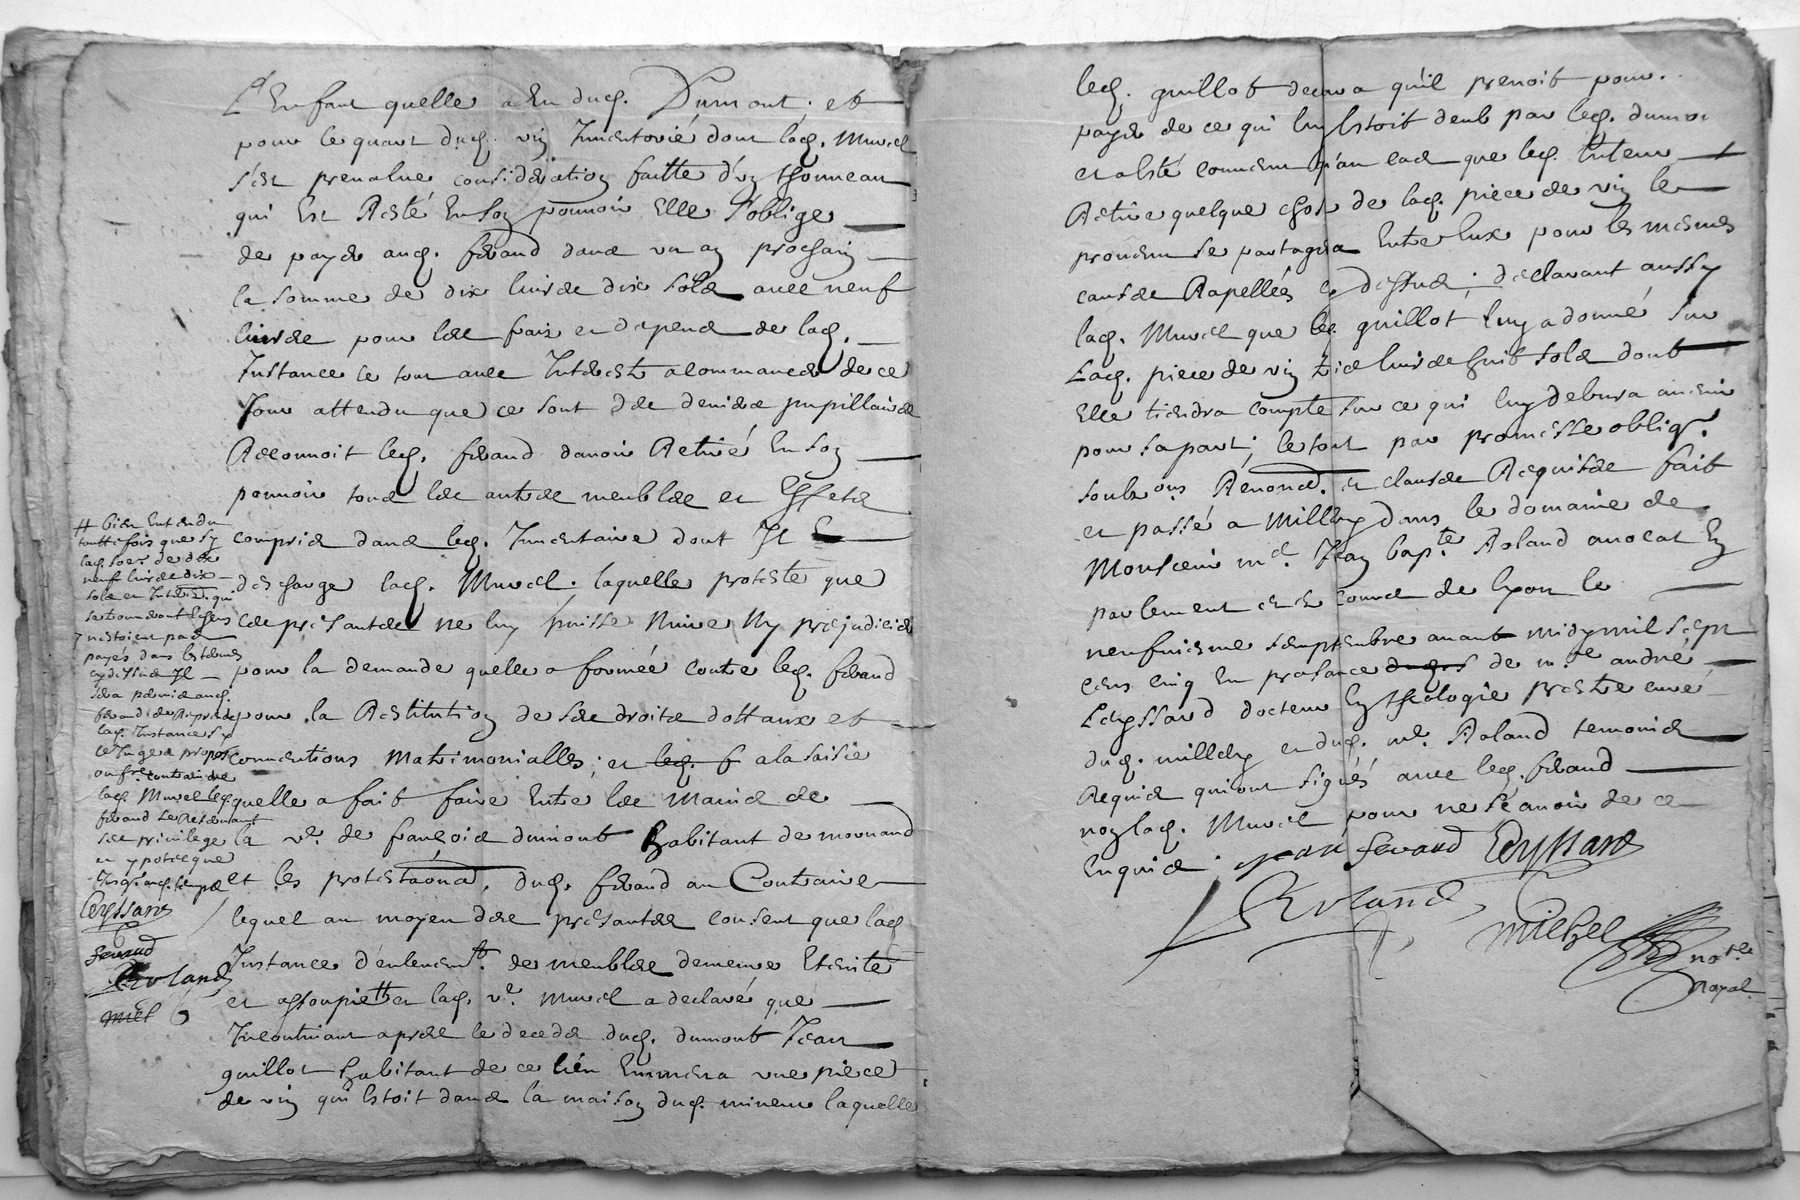 L'Enfant quelle a Eu dud. Dumont. et
pour le quart dud. vin Inventorié dont lad. Murel
s'est prevalue consideration faitte d'un thonneau
qui Est Resté En son pouvoir Elle s'oblige
de payer aud. feraud dans un an prochain
la somme de dix livres dix sols avec neuf
livres pour les frais et depens de lad.
Instance le tout avec Interests a commancer de ce
Jour attendu que ce sont des deniers pupillaires
Reconnoit led. feraud davoir Retiré En son
pouvoir tous les autres meubles et Effets
compris dans led. Inventaire dont Il
descharge lad. Murel. laquelle proteste que
ces presantes ne luy puisse Nuire Ny prejudicier
pour la demande quelle a formée contre led. feraud
pour la Restitution de ses droits dottaux et
conventions matrimonialles; et led. f a la saisie
quelle a fait faire Entre les Mains de
la ve. de françois dumont habitant de mornand
et les protestaons. dud. feraud au Contraire
lequel au moyen des presantes consent que lad.
Instance d'enlevemt. de meubles demeure Eteinte
et assoupie et lad. ve. Murel a declaré que
Incontinant apres le deceds dud. dumont Jean
guillot habitant de ce lieu Emmena une piece
de vin qui Estoit dans la maison dud. mineur laquelle
# bien Entendu
touttefois que sy
lad. so͠e. de dix
neuf livres dix
sols et Interests. qui
se trouveront Echeus
nestoient pas
payés dans le temps
cy dessus Il
sera permis aud.
feraud de Reprendre
lad. Instance sy
le Juge a propos
ou fre. contraindre
lad. Murel led.
feraud se Reservant
ses privilege
et ypoteque
Jusqu'aud. temps
Leyssard
feraud
Roland
miel
led. guillot declara qu'il prenoit pour
payer de ce qui luy Estoit deub par led. dumont
et a esté convenu qu'au cas que led. tuteur
Retire quelque chose de lad. piece de vin le
provenu se partagera Entre Eux pour les mesmes
causes Rapellées cy dessus; declarant aussy
lad. Murel que led. guillot luy a donné sur
Lad. piece de vin trois livres huit sols dont
Elle tiendra compte sur ce qui luy debvra avenir
pour sa part; le tout par promesse obligon.
soubs ons. Renonds. et clauses Requises fait
et passé a Millery dans le domaine de
Monsieur me. Jean bapte. Roland avocat En
parlement et es cours de lyon le
neufviesme septembre avant midy mil sept
cens cinq En presance dudit s de mre. andré
Leyssard docteur En theologie prestre curé
dud. millery et dud. me. Roland temoins
Requis qui ont signés avec led. feraud
non lad. Murel pour ne sçavoir de ce
Enquise. jean feraud Leyssard
Roland
Michel nore.
Royal